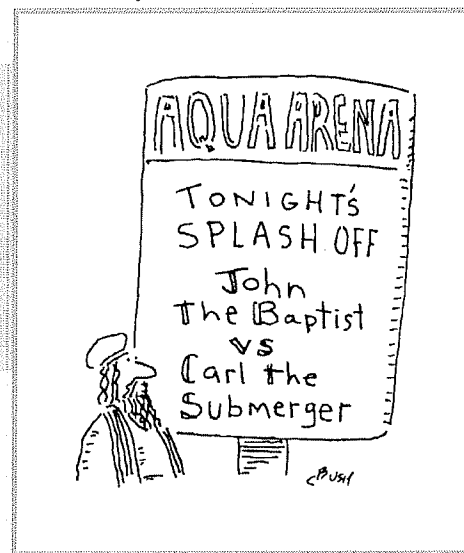 AQUA ARENA
TONIGHT'S
SPLASH OFF
John
The Baptist
VS
Carl the
Submerger
CBUSH